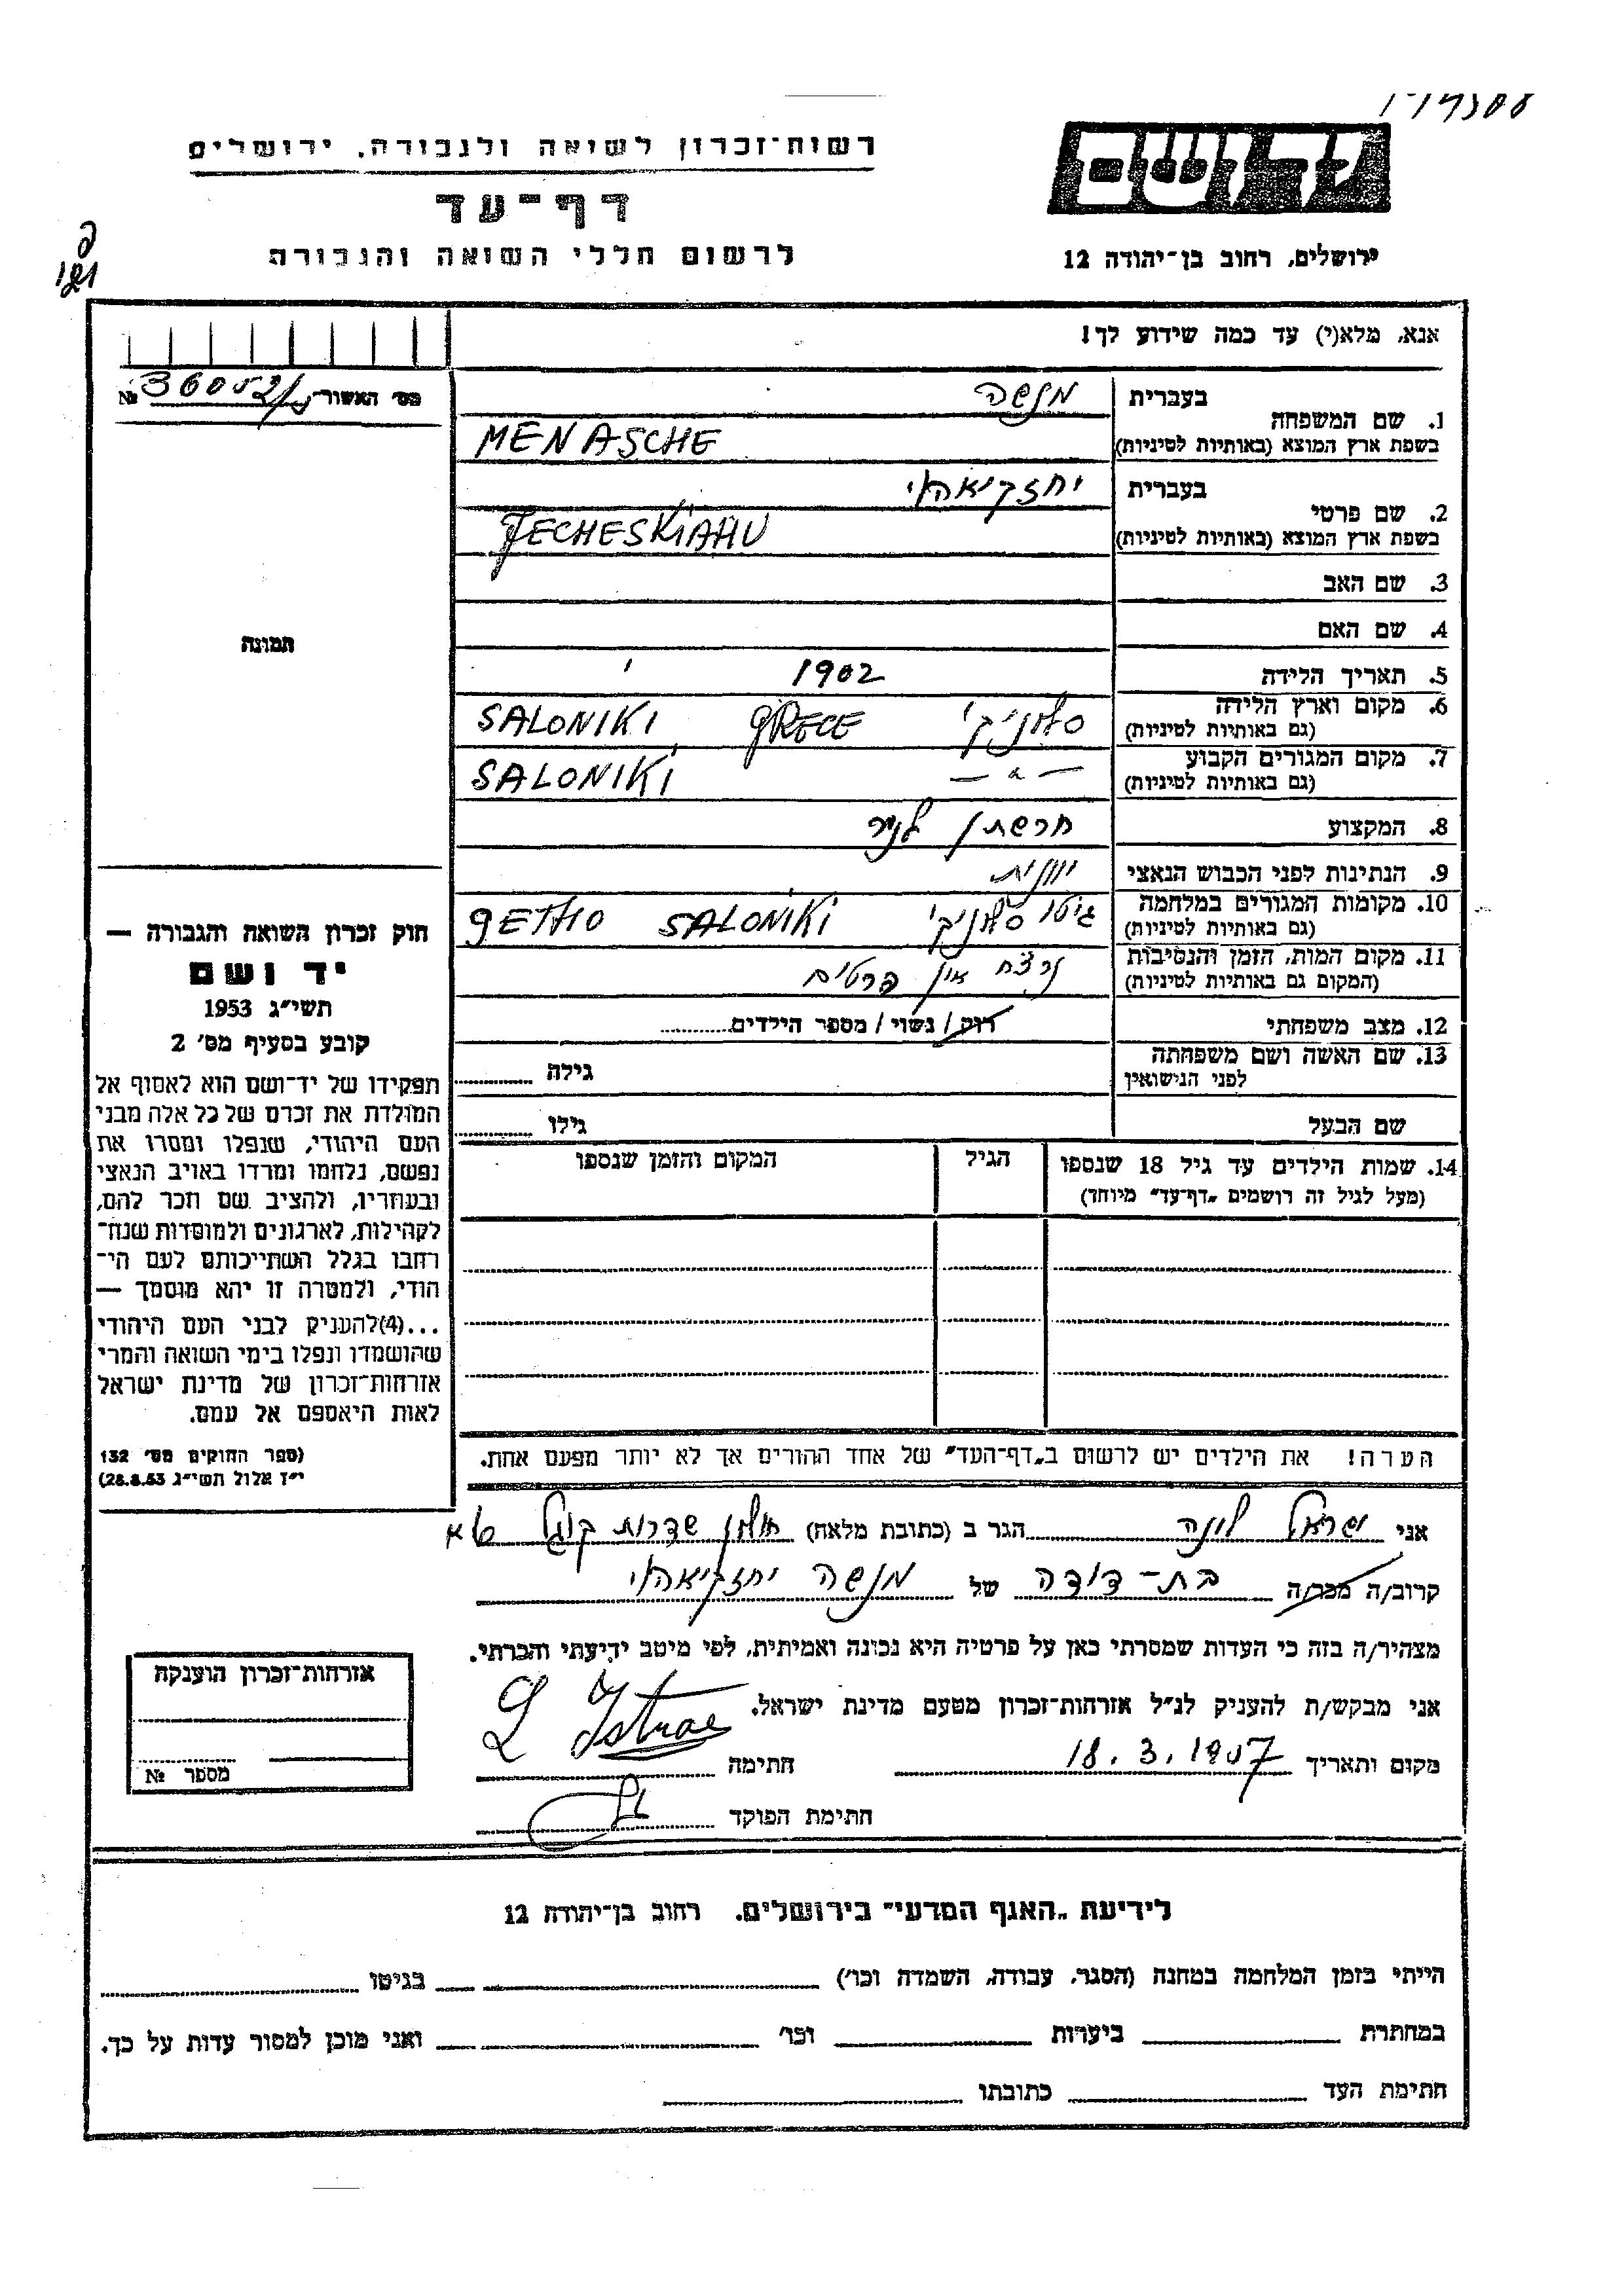 רשות־זכרון לשואה ולגבורה, ירושלים
דף־עד
לרשום חללי השואה והגבורה
יד ושם
ירושלים, רחוב בן־יהודה 12
אנא, מלא(י) עד כמה שידוע לך!
מס' האשור № 36052
1. שם המשפחה
בעברית מנשה
בשפת ארץ המוצא (באותיות לטיניות) MENASCHE
2. שם פרטי
בעברית יחזקיאהו
בשפת ארץ המוצא (באותיות לטיניות) JECHESKIAHU
3. שם האב
4. שם האם
5. תאריך הלידה 1902
6. מקום וארץ הלידה סלוניקי GRECE SALONIKI
(גם באותיות לטיניות)
7. מקום המגורים הקבוע SALONIKI — " —
(גם באותיות לטיניות)
8. המקצוע חרשתן
9. הנתינות לפני הכבוש הנאצי יוונית
10. מקומות המגורים במלחמה גיטו סלוניקי SALONIKI GETHO
(גם באותיות לטיניות)
11. מקום המות, הזמן והנסיבות נרצח אין פרטים
(המקום גם באותיות לטיניות)
12. מצב משפחתי רווק / נשוי / מספר הילדים
13. שם האשה ושם משפחתה גילה
לפני הנישואין
שם הבעל גילו
14. שמות הילדים עד גיל 18 שנספו הגיל המקום והזמן שנספו
(מעל לגיל זה רושמים "דף־עד" מיוחד)
הערה! את הילדים יש לרשום ב"דף־העד" של אחד ההורים אך לא יותר מפעם אחת.
תמונה
חוק זכרון השואה והגבורה —
יד ושם
תשי"ג 1953
קובע בסעיף מס' 2
תפקידו של יד־ושם הוא לאסוף אל
המולדת את זכרם של כל אלה מבני
העם היהודי, שנפלו ומסרו את
נפשם, נלחמו ומרדו באויב הנאצי
ובעוזריו, ולהציב שם וזכר להם,
לקהילות, לארגונים ולמוסדות שנח־
רבו בגלל השתייכותם לעם הי־
הודי, ולמטרה זו יהא מוסמך —
...(4)להעניק לבני העם היהודי
שהושמדו ונפלו בימי השואה והמרי
אזרחות־זכרון של מדינת ישראל
לאות היאספם אל עמם.
(ספר החוקים מס' 132
י"ז אלול תשי"ג 28.8.53)
אני ישראל לונה הגר ב (כתובת מלאה) חולון שדרות קוגל
קרוב/ה מכר/ה בת-דודה של מנשה יחזקיאהו
מצהיר/ה בזה כי העדות שמסרתי כאן על פרטיה היא נכונה ואמיתית, לפי מיטב ידיעתי והכרתי.
אני מבקש/ת להעניק לנ"ל אזרחות־זכרון מטעם מדינת ישראל.
מקום ותאריך 18.3.1957 חתימה L Istrae
חתימת הפוקד
אזרחות־זכרון הוענקה
מספר №
לידיעת "האגף המדעי" בירושלים. רחוב בן־יהודה 12
הייתי בזמן המלחמה במחנה (הסגר, עבודה, השמדה וכו') בגיטו
במחתרת ביערות וכו' ואני מוכן למסור עדות על כך.
חתימת העד כתובתו